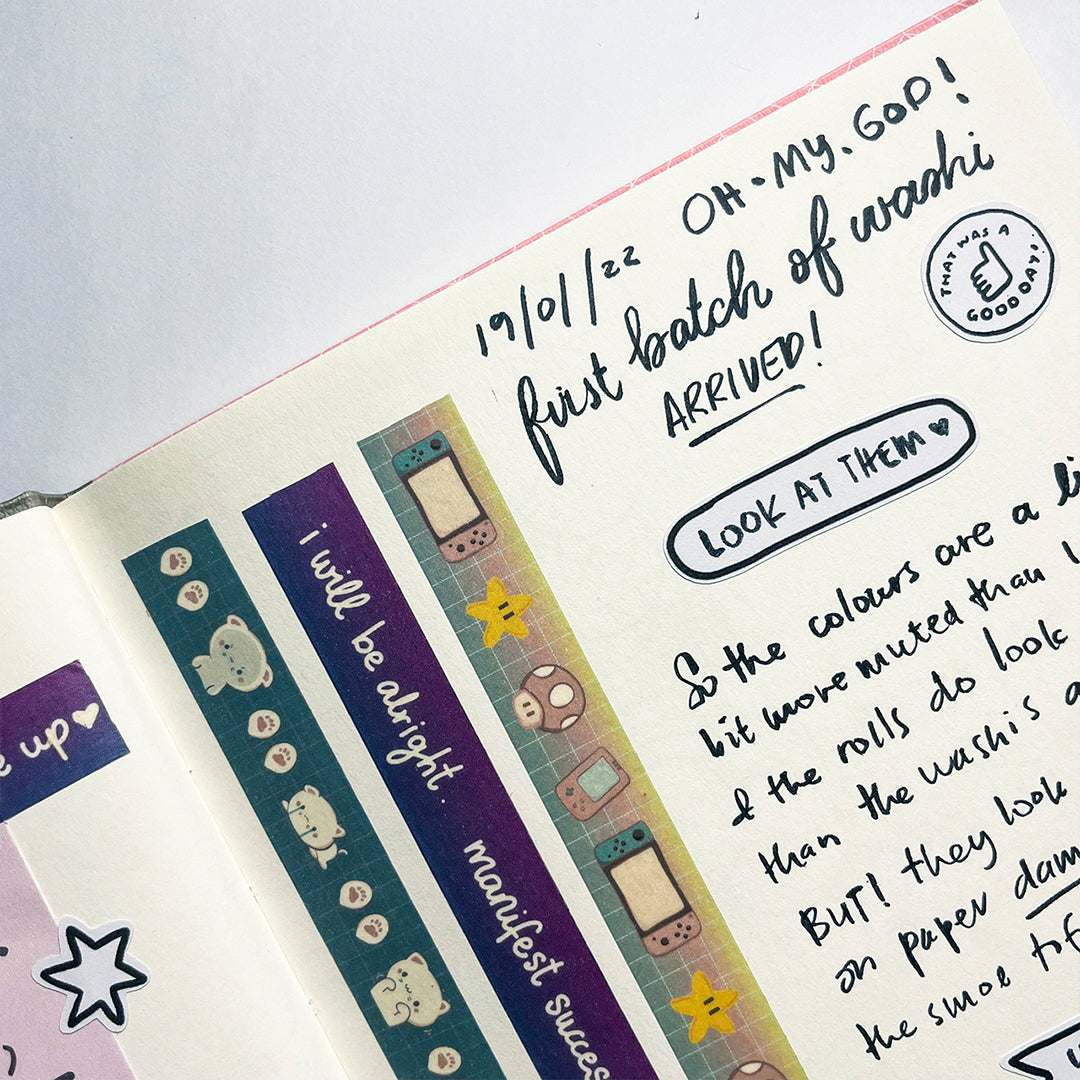 OH. MY. GOD!
19/01/22
first batch of washi
ARRIVED!
THAT WAS A GOOD DAY!
LOOK AT THEM
So the colours are a
bit more muted than
& the rolls do look
than the washis
BUT! they look
on paper
the
i will be alright.
manifest succes
up